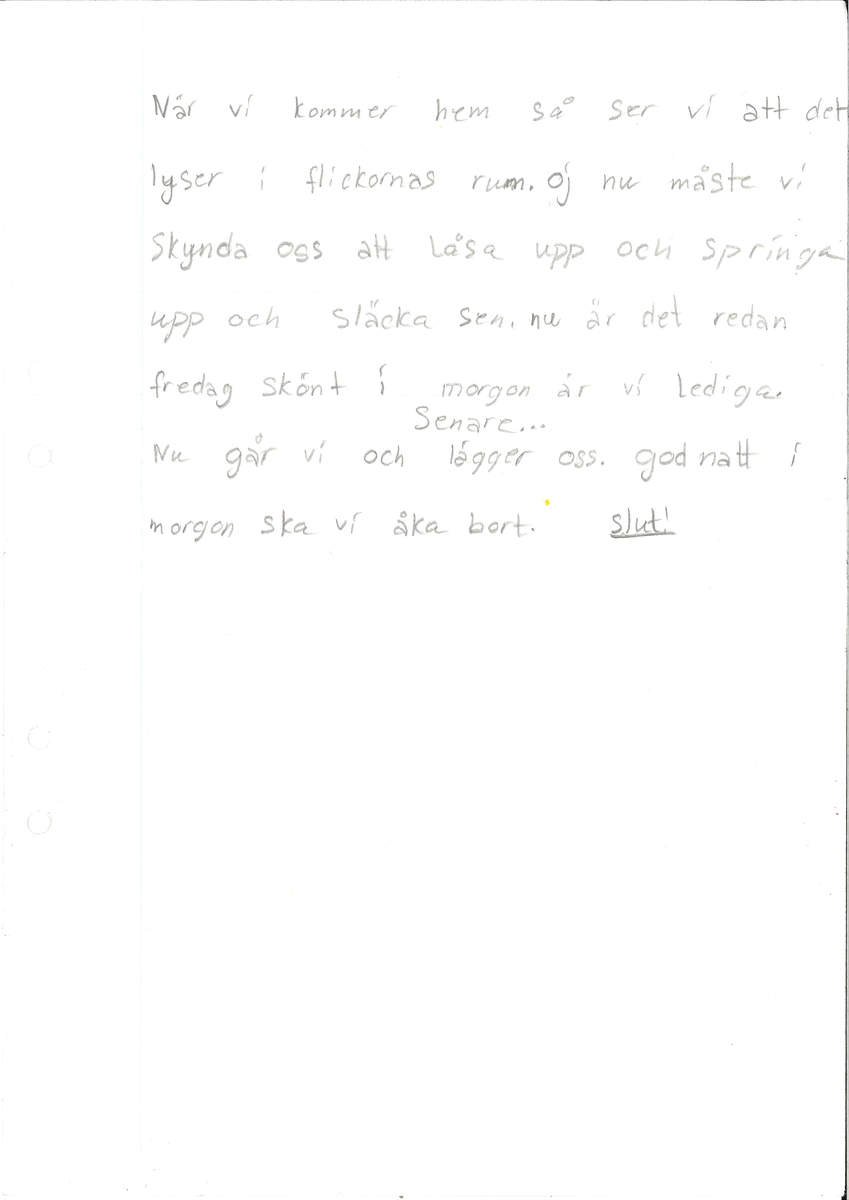 När vi kommer hem så ser vi att det
lyser i flickornas rum. oj nu måste vi
Skynda oss att låsa upp och springa
upp och släcka sen. nu är det redan
fredag skönt i morgon är vi lediga.
Senare...
Nu går vi och lägger oss. god natt i
morgon ska vi åka bort. slut!